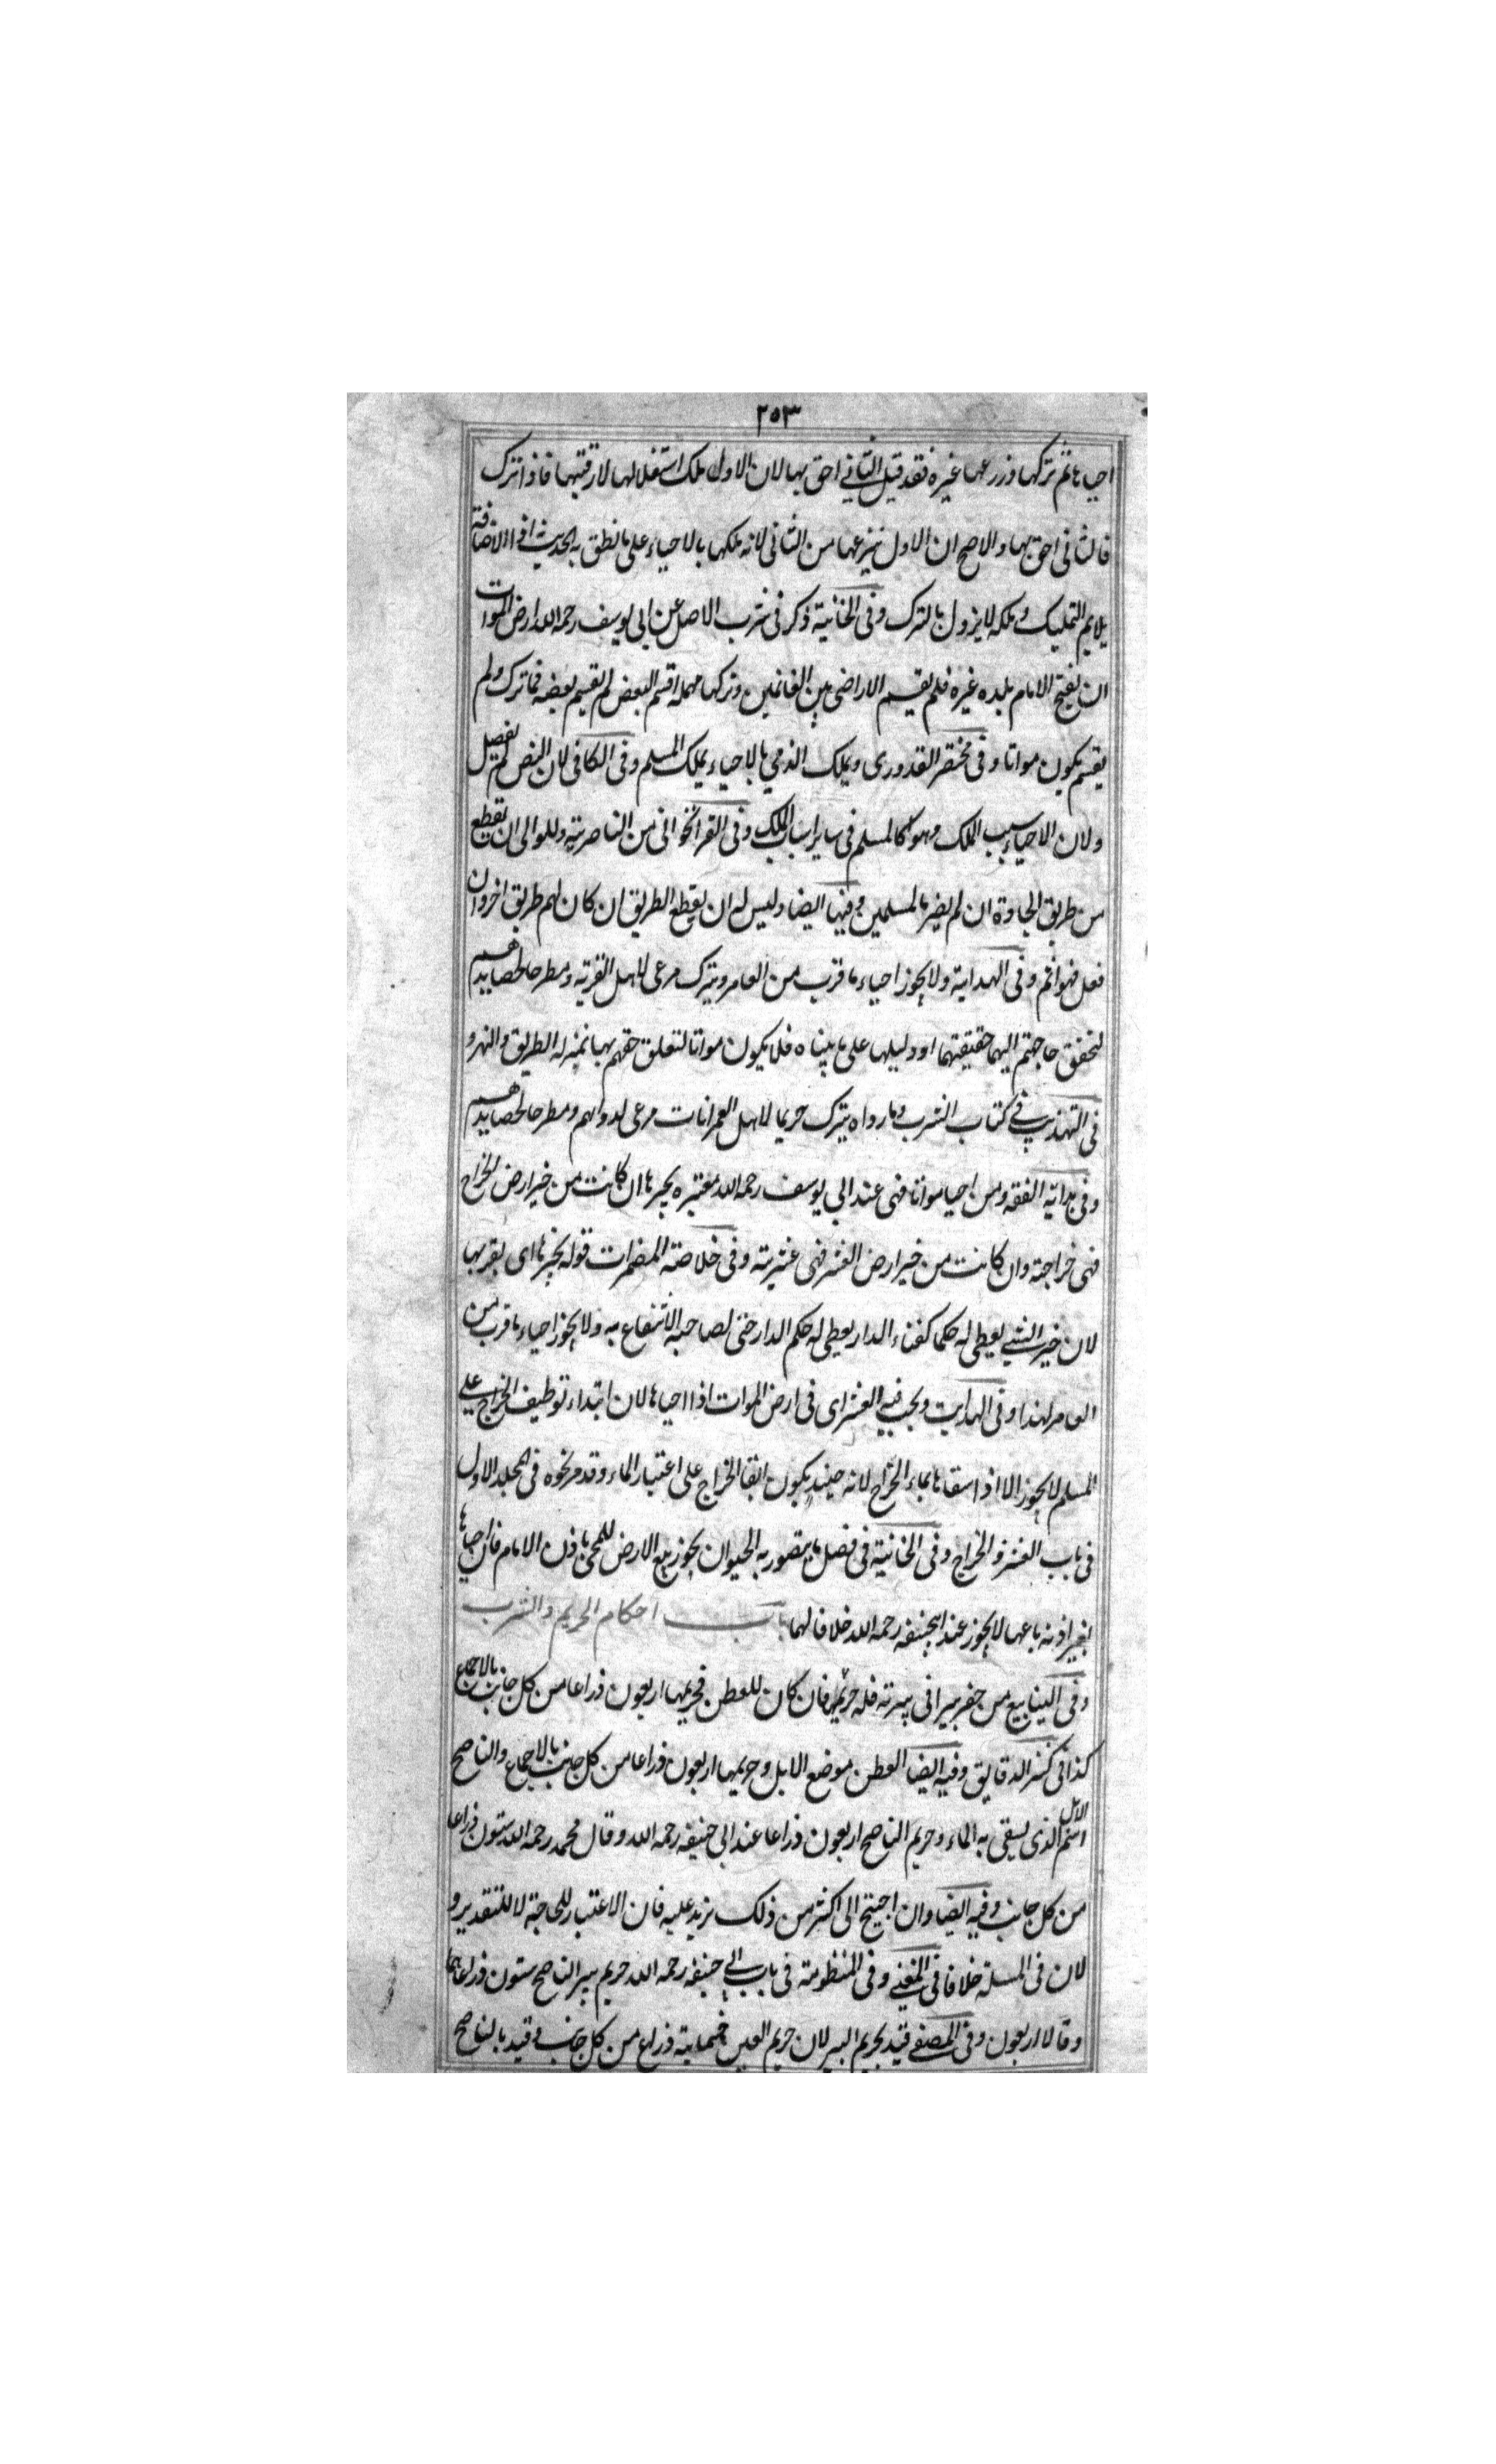 ٢٥٣
احياها ثم تركها وزرعها غيره فقد قيل الثاني احق بها لان الاول ملك استغلالها لا رقبتها فاذا ترك
فالثاني احق بها والاصح ان الاول ينزعها من الثاني لانه ملكها بالاحياء على ما نطق به الحديث اذ الاضافة
بلام التمليك وملكه لا يزول بالترك وفي الخانية ذكر في شرب الاصل عن ابي يوسف رحمه الله ارض الموات
ان يفتح الامام بلده غيره فلم يقسم الاراضي بين الغانمين وتركها مهملة اقسم البعض لم يقسم بعضه فما ترك ولم
يقسم يكون مواتا وفي مختصر القدوري ويملك الذمي بالاحياء يملك المسلم وفي الكافي لان النص لم يفصل
ولان الاحياء سبب الملك وهو كالمسلم في ساير اسباب الملك وفي القراخواني من الناصرية وللوالي ان يقطع
من طريق الجادة ان لم يضر بالمسلمين وفيها ايضا وليس له ان يقطع الطريق ان كان لهم طريق اخر وان
فعل فهو اثم وفي الهداية ولا يجوز احياء ما قرب من العامر ويترك مرعى لاهل القرية ومطرحا لحصايدهم
لتحقق حاجتهم اليهما حقيقتهما او دليلها على ما بيناه فلا يكون مواتا لتعلق حقهم بها بمنزلة الطريق والنهر و
في التهذيب في كتاب الشرب وما رواه يترك حريما لاهل العمرانات مرعى لدوابهم ومطرحا لحصايدهم
وفي بداية الفقه ومن احيا مواتا فهي عند ابي يوسف رحمه الله معتبره بحيزها ان كانت من حيز ارض الخراج
فهي خراجية وان كانت من حيز ارض العشر فهي عشرية وفي خلاصة المضمرات قوله بحيزها اي بقربها
لان حيز الشيء يعطى له حكما كفناء الدار يعطى له حكم الدار حتى لصاحبه الانتفاع به ولا يجوز احياء ما قرب من
العامر لهذا وفي الهداية ويجب فيه العشر اي في ارض الموات اذا احياها لان ابتداء توظيف الخراج على
المسلم لا يجوز الا اذا سقاها بماء الخراج لانه حينئذ يكون ابقا الخراج على اعتبار الماء وقد مر نحوه في المجلد الاول
في باب العشر والخراج وفي الخانية في فصل ما يتصور به الحيوان يجوز بيع الارض للمحي باذن الامام فان احياها
بغير اذنه باعها لا يجوز عند ابيحنيفه رحمه الله خلافا لهما باب احكام الحريم والشرب
وفي الينابيع من حفر بيرا في برية فله حريمها فان كان للعطن فحريمها اربعون ذراعا من كل جانب بالاجماع
كذا في كنز الدقايق وفيه ايضا العطن موضع الابل وحريمها اربعون ذراعا من كل جانب بالاجماع والناضح
اسم الابل الذي يسقى به الماء وحريم الناضح اربعون ذراعا عند ابي حنيفه رحمه الله وقال محمد رحمه الله ستون ذراعا
من كل جانب وفيه ايضا وان احتيج الى اكثر من ذلك يزيد عليه فان الاعتبار للحاجة لا للتقدير و
لان في المسئلة خلافا في المغني وفي المنظومة في باب ابي حنيفه رحمه الله حريم بير الناضح ستون ذراعا هما
وقالا اربعون وفي المصفى قيد بحريم البير لان حريم العين خمسماية ذراع من كل جانب وقيد بالناضح